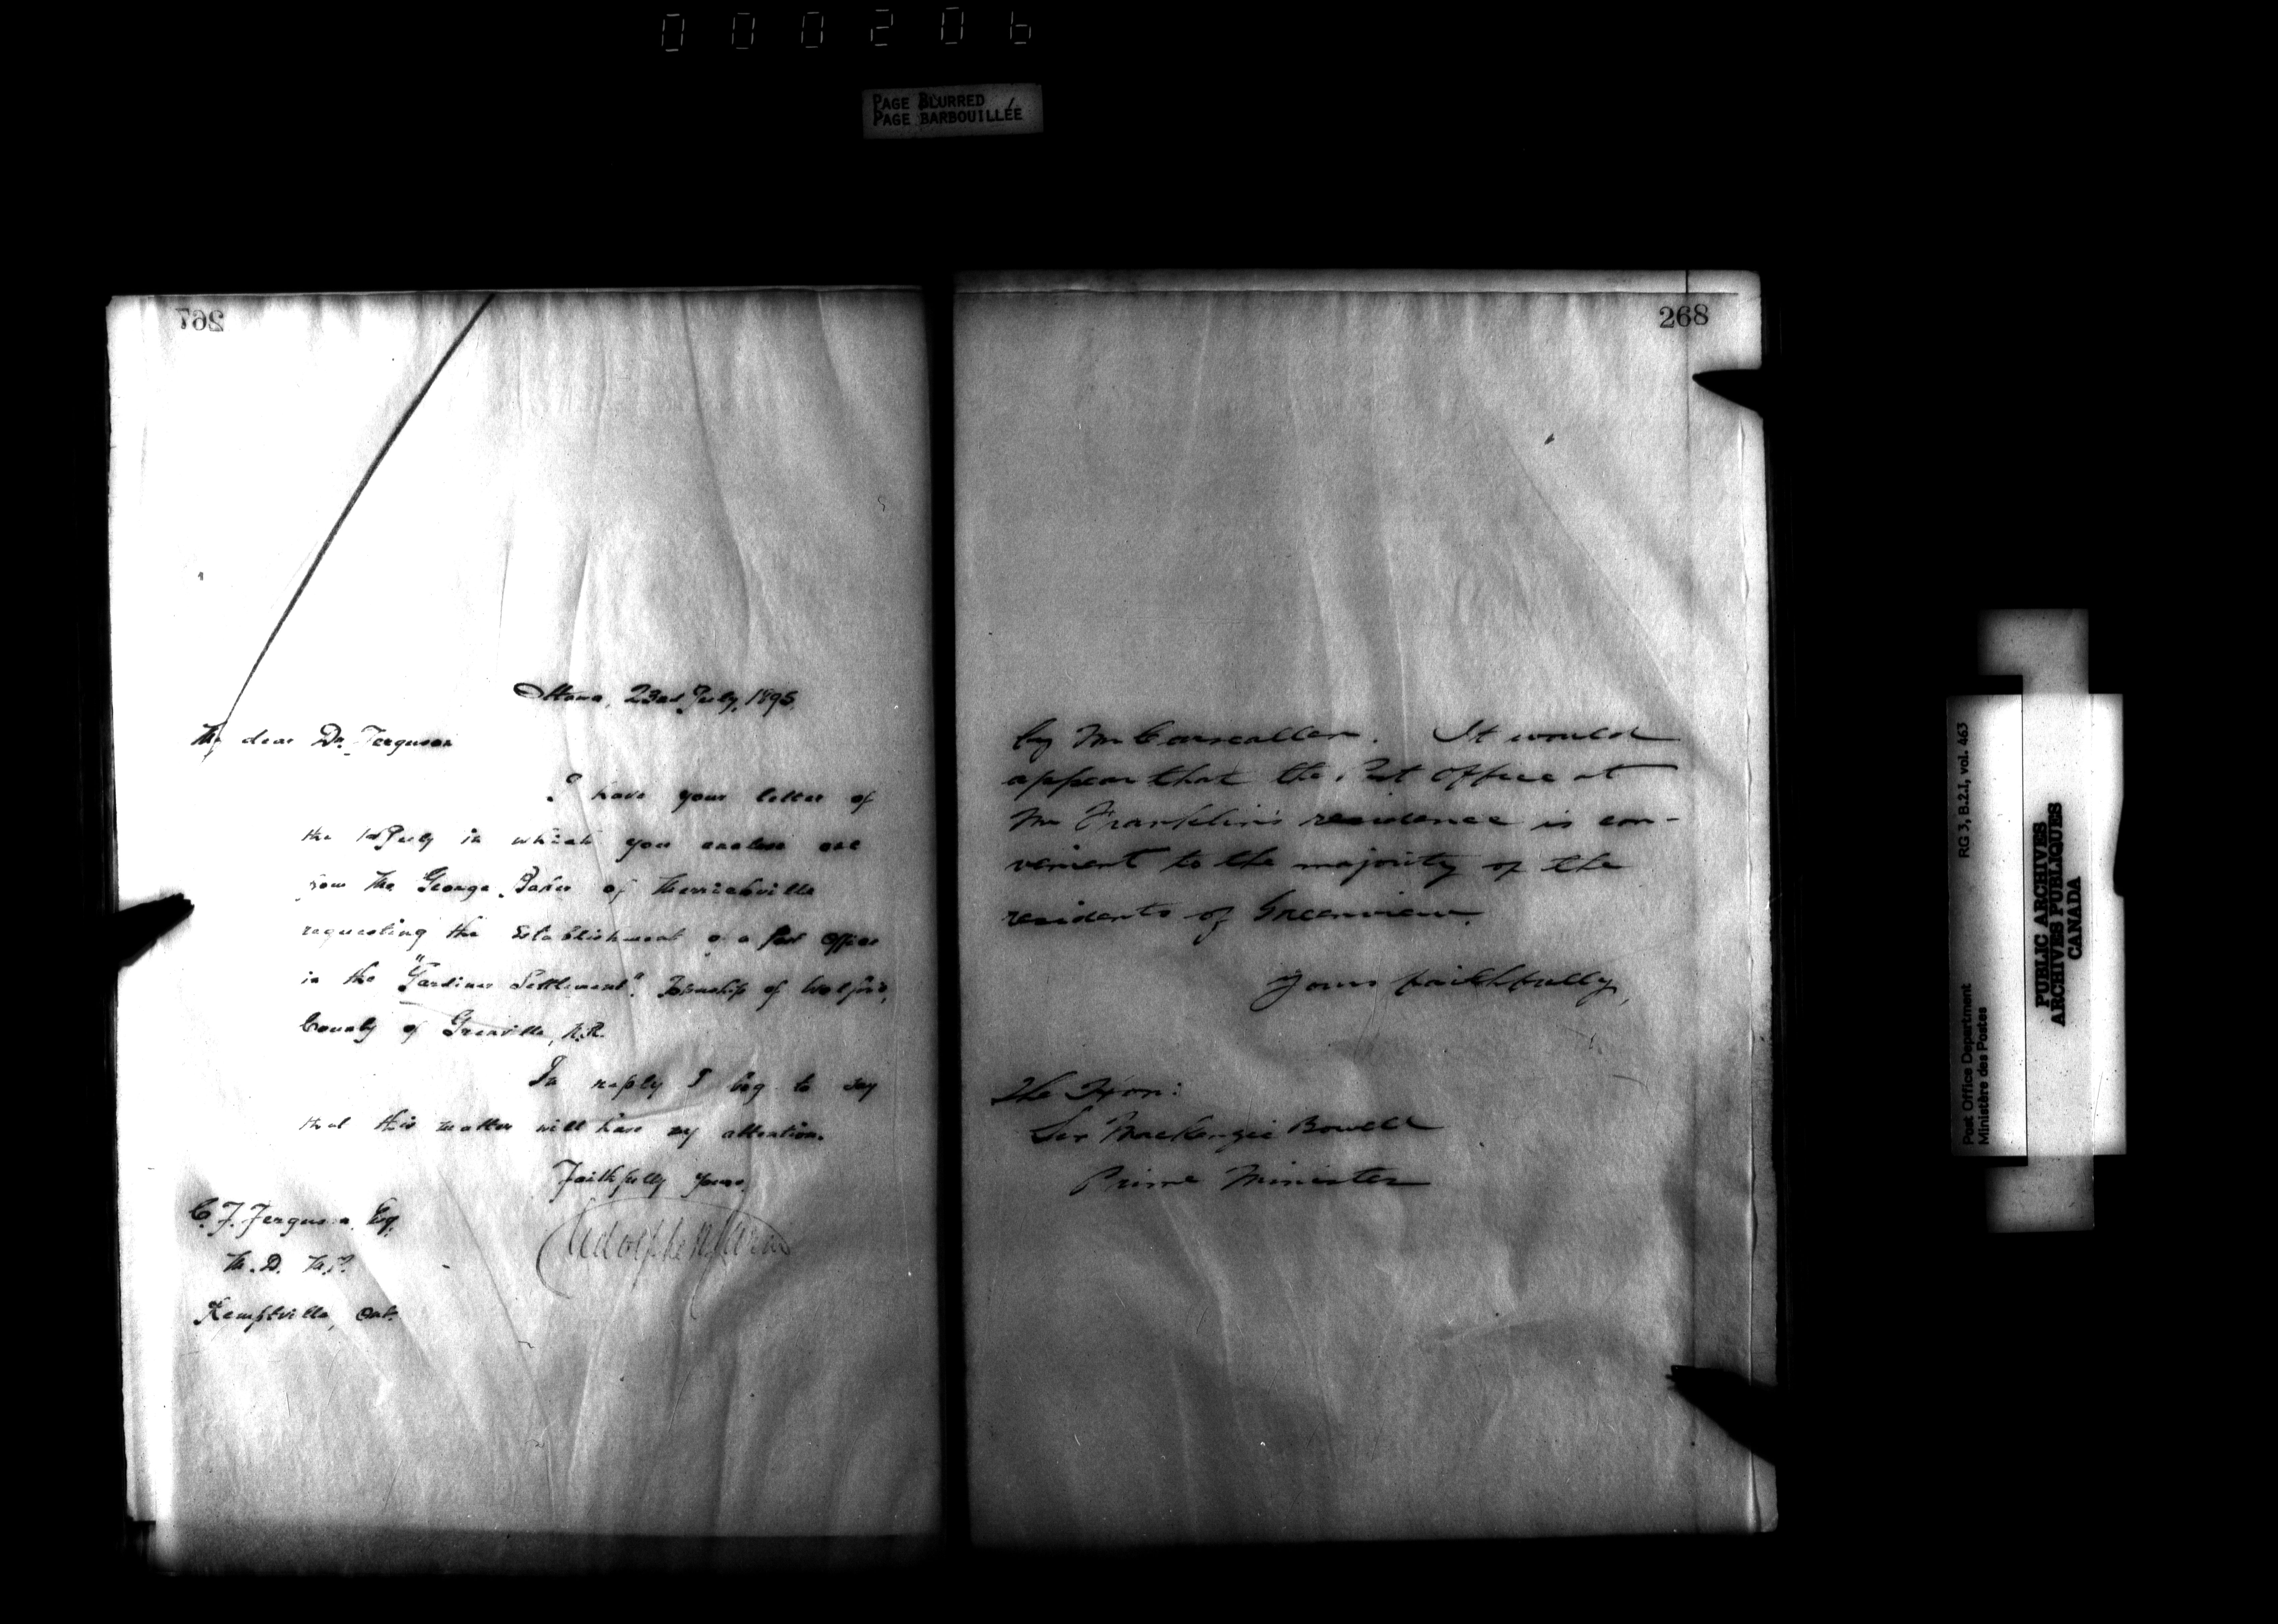 000206
PAGE BLURRED
PAGE BARBOUILLÉE
267
Ottawa, 23rd July, 1895.
My dear Dr. Ferguson
I have your letter of
the 1st July in which you enclose one
from Mr George Baker of Merrickville
requesting the Establishment of a Post Office
in the "Gardiner Settlement", Township of Wolford,
County of Grenville, N.R.
In reply I beg to say
that this matter will have my attention.
Faithfully yours,
Adolphe P. Caron
C. F. Ferguson, Esq.
M.D. M.P.
Kemptville, Ont.
268
by Mr Carscallen. It would
appear that the Post Office at
Mr Franklin's residence is con-
venient to the majority of the
residents of Greenview.
Yours faithfully,
The Hon:
Sir MacKenzie Bowell
Prime Minister
Post Office Department
Ministère des Postes
RG 3, B.2.I, vol. 463
PUBLIC ARCHIVES
ARCHIVES PUBLIQUES
CANADA